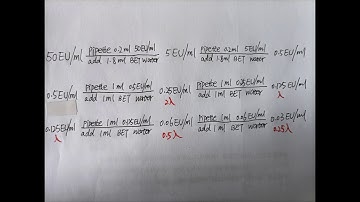 50EU/ml Pipette 0.2ml 50EU/ml 5EU/ml Pipette 0.2ml 5EU/ml 0.5EU/ml
add 1.8ml BET water add 1.8ml BET water
0.5EU/ml Pipette 1ml 0.5EU/ml 0.25EU/ml Pipette 1ml 0.25EU/ml 0.125EU/ml
add 1ml BET water 2λ add 1ml BET water λ
0.125EU/ml Pipette 1ml 0.125EU/ml 0.06EU/ml Pipette 1ml 0.06EU/ml 0.03EU/ml
λ add 1ml BET water 0.5λ add 1ml BET water 0.25λ